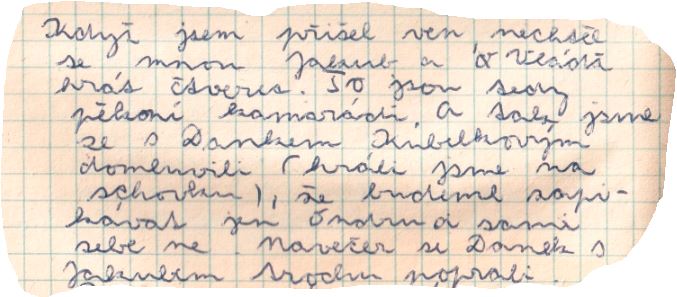 Když jsem přišel ven nechtěl
se mnou Jakub a
hrát čtverec. To jsou tedy
pěkní kamarádi. A tak jsme
se s Dankem Kubelkovým
domluvili (hráli jsme na
schovku), že budeme zapi-
kávat jen Ondru a sami
sebe ne. Navečer se Danek s
Jakubem trochu poprali.